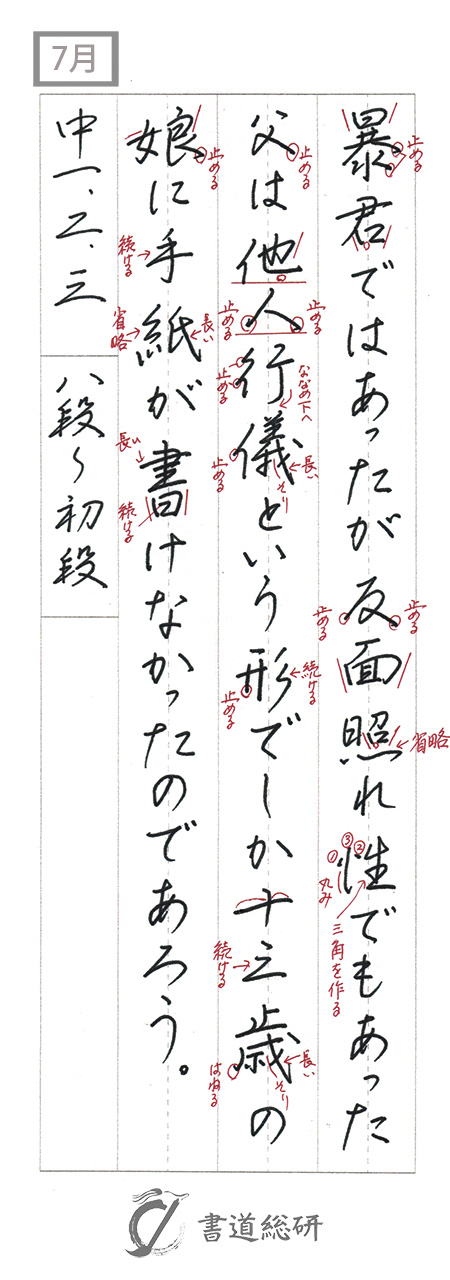 7月
暴君ではあったが反面照れ性でもあった
止める
省略
①
②
③
丸み
三角を作る
止める
止める
父は他人行儀という形でしか十三歳の
止める
止める
止める
止める
ななめ下へ
長い
そり
止める
続ける
止める
続ける
長い
そり
はねる
娘に手紙が書けなかったのであろう。
止める
続ける
省略
長い
長い
続ける
中一、二、三
八段〜初段
書道総研